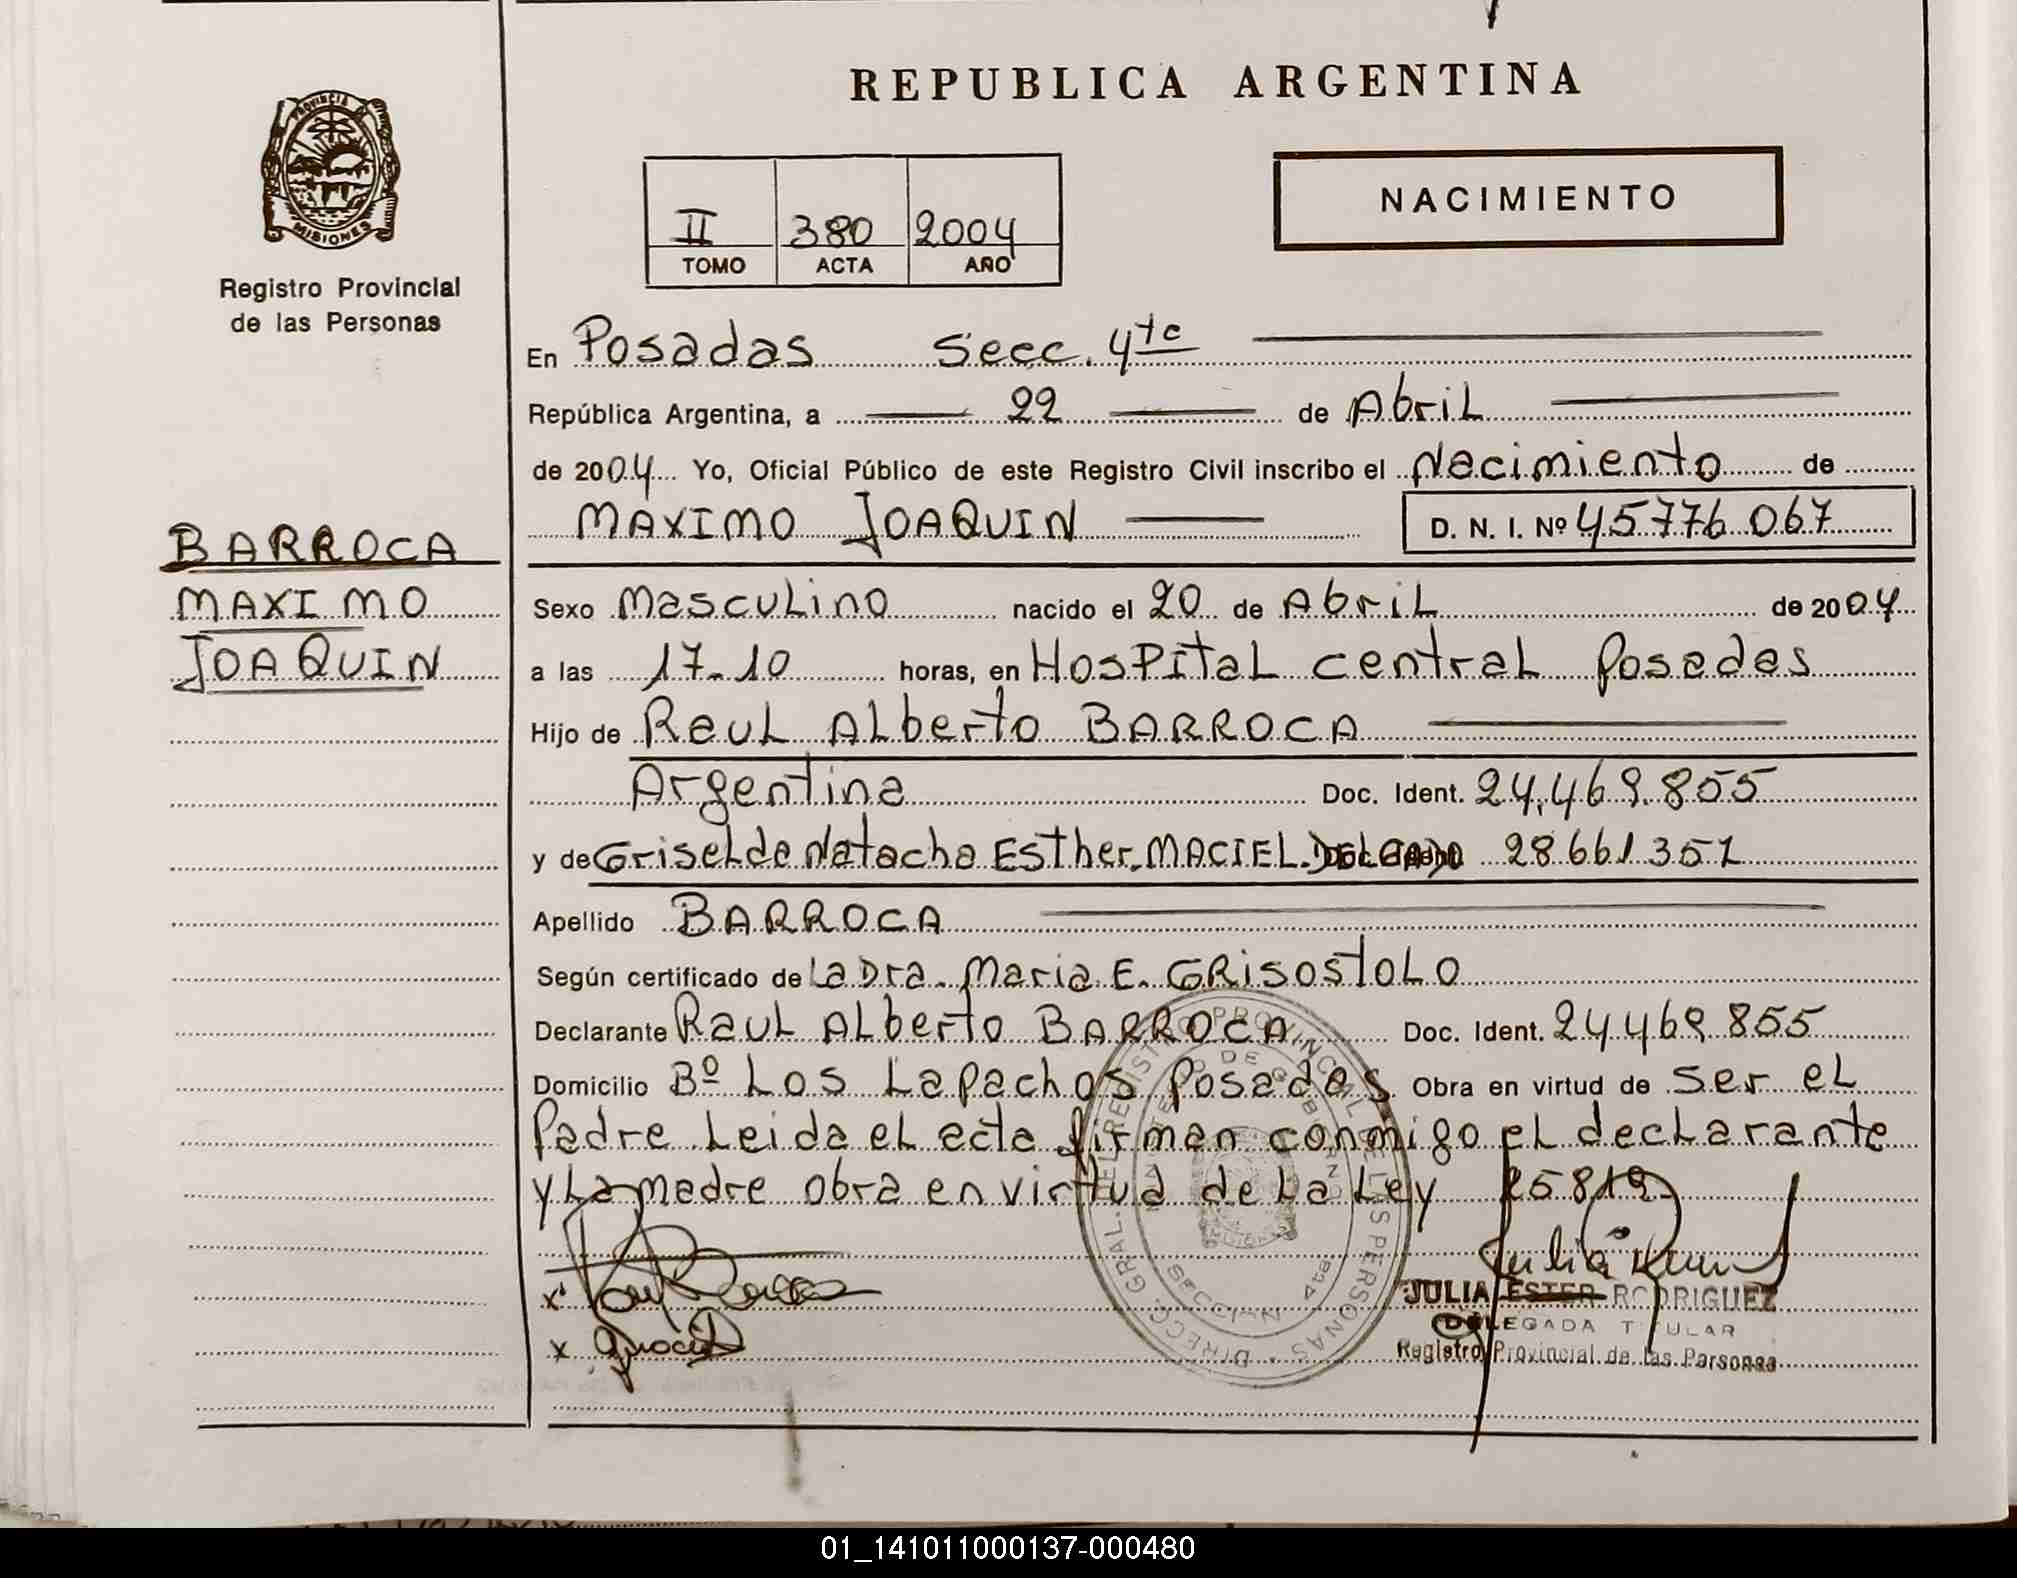 REPUBLICA ARGENTINA
PROVINCIA DE
MISIONES
Registro Provincial
de las Personas
II 380 2004
TOMO ACTA AÑO
NACIMIENTO
En Posadas Secc. 4ta
República Argentina, a 22 de Abril
de 2004 Yo, Oficial Público de este Registro Civil inscribo el Nacimiento de
MAXIMO JOAQUIN D. N. I. Nº 45776067
BARROCA
MAXIMO
JOAQUIN
Sexo Masculino nacido el 20 de Abril de 2004
a las 17-10 horas, en Hospital central Posadas
Hijo de Raul Alberto BARROCA
Argentina Doc. Ident. 24.469.855
y de Griselda Natacha Esther MACIEL DELGADO 28661351
Apellido BARROCA
Según certificado de La Dra. Maria E. GRISOSTOLO
Declarante Raul Alberto BARROCA Doc. Ident. 24469855
Domicilio Bº Los Lapachos Posadas Obra en virtud de ser el
Padre Leida el acta firman conmigo el declarante
y La madre obra en virtud de La Ley 25819
DIRECC. GRAL. DEL REGISTRO PROVINCIAL DE LAS PERSONAS
MINISTERIO DE GOBIERNO
SECCION 4ta
JULIA ESTER RODRIGUEZ
DELEGADA TITULAR
Registro Provincial de las Personas
01_141011000137-000480